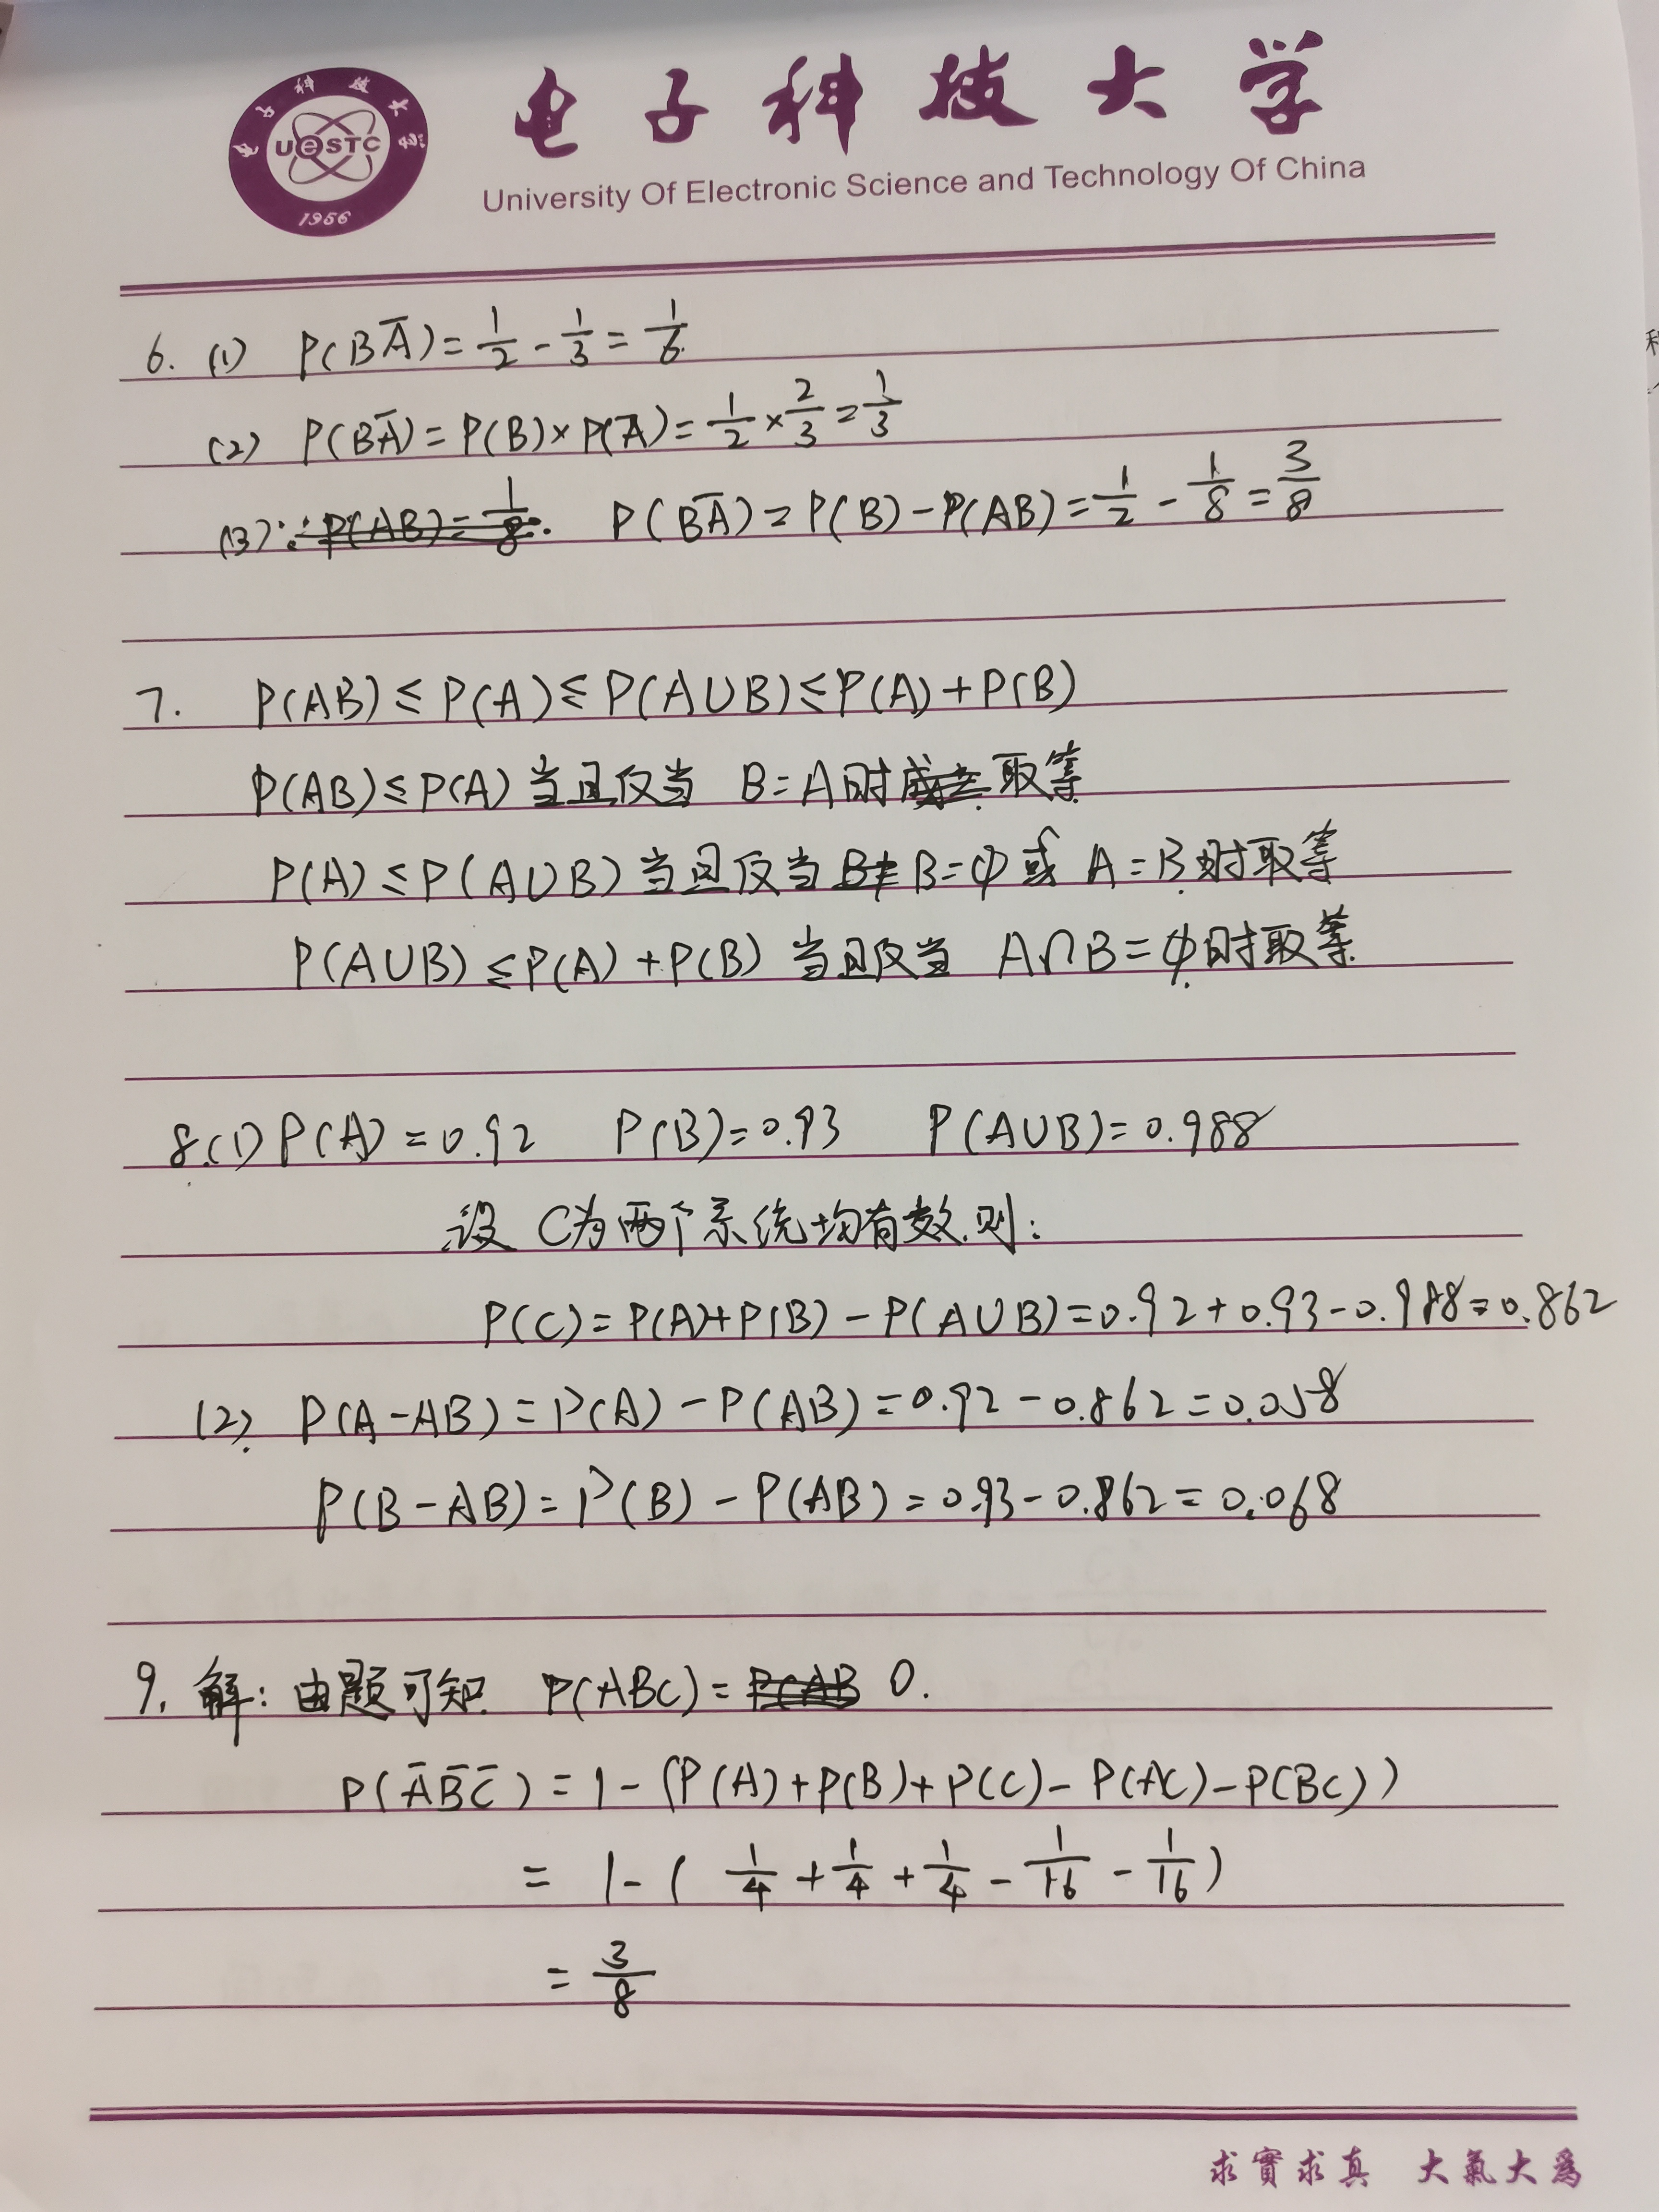 电子科技大学
University Of Electronic Science and Technology Of China
电子科技大学
UeSTC
1956
6. (1) P(BA̅)=1/2-1/3=1/6
(2) P(BA̅)=P(B)×P(A̅)=1/2×2/3=1/3
(3) ∵P(AB)=1/8. P(BA̅)=P(B)-P(AB)=1/2-1/8=3/8
7. P(AB)≤P(A)≤P(A∪B)≤P(A)+P(B)
P(AB)≤P(A)当且仅当 B=A时成立 取等
P(A)≤P(A∪B)当且仅当 B≠ B=φ或 A=B时取等
P(A∪B)≤P(A)+P(B) 当且仅当 A∩B=φ时取等
8.(1) P(A)=0.92 P(B)=0.93 P(A∪B)=0.988
设 C为两个系统均有效.则:
P(C)=P(A)+P(B)-P(A∪B)=0.92+0.93-0.988=0.862
(2). P(A-AB)=P(A)-P(AB)=0.92-0.862=0.058
P(B-AB)=P(B)-P(AB)=0.93-0.862=0.068
9. 解:由题可知. P(ABC)=P(AB 0.
P(A̅B̅C̅)=1-(P(A)+P(B)+P(C)-P(AC)-P(BC))
=1-(1/4+1/4+1/4-1/16-1/16)
=3/8
求實求真 大氣大為